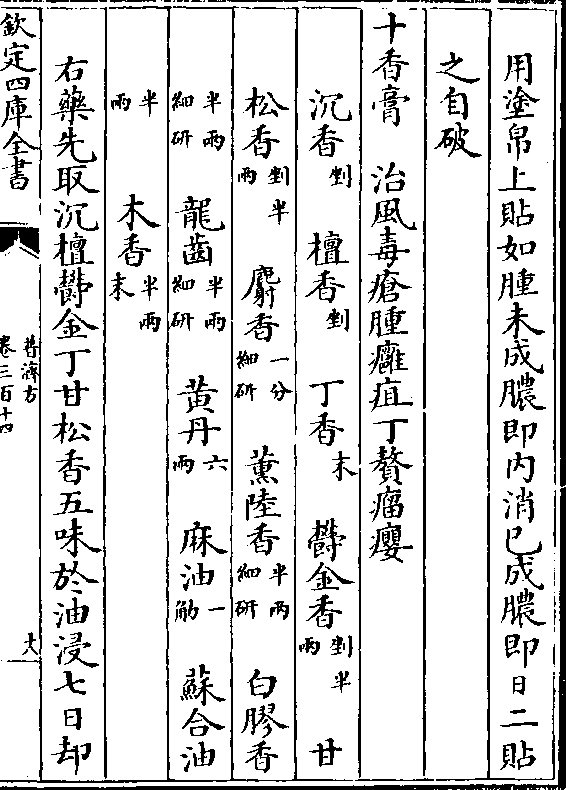 用塗帛上貼如腫未成膿即内消已成膿即日二貼
之自破
十香膏　治風毒瘡腫癰疽丁贅瘤癭
沉香剉　檀香剉　丁香末　鬱金香剉半兩　甘
松香剉半兩　麝香一分細研　薫陸香半兩細研　白膠香
半兩細研　龍齒半兩細研　黄丹六兩　麻油一觔　蘇合油
半兩　木香半兩末
右藥先取沉檀鬱金丁甘松香五味於油浸七日却
欽定四庫全書
普濟方
卷三百十四